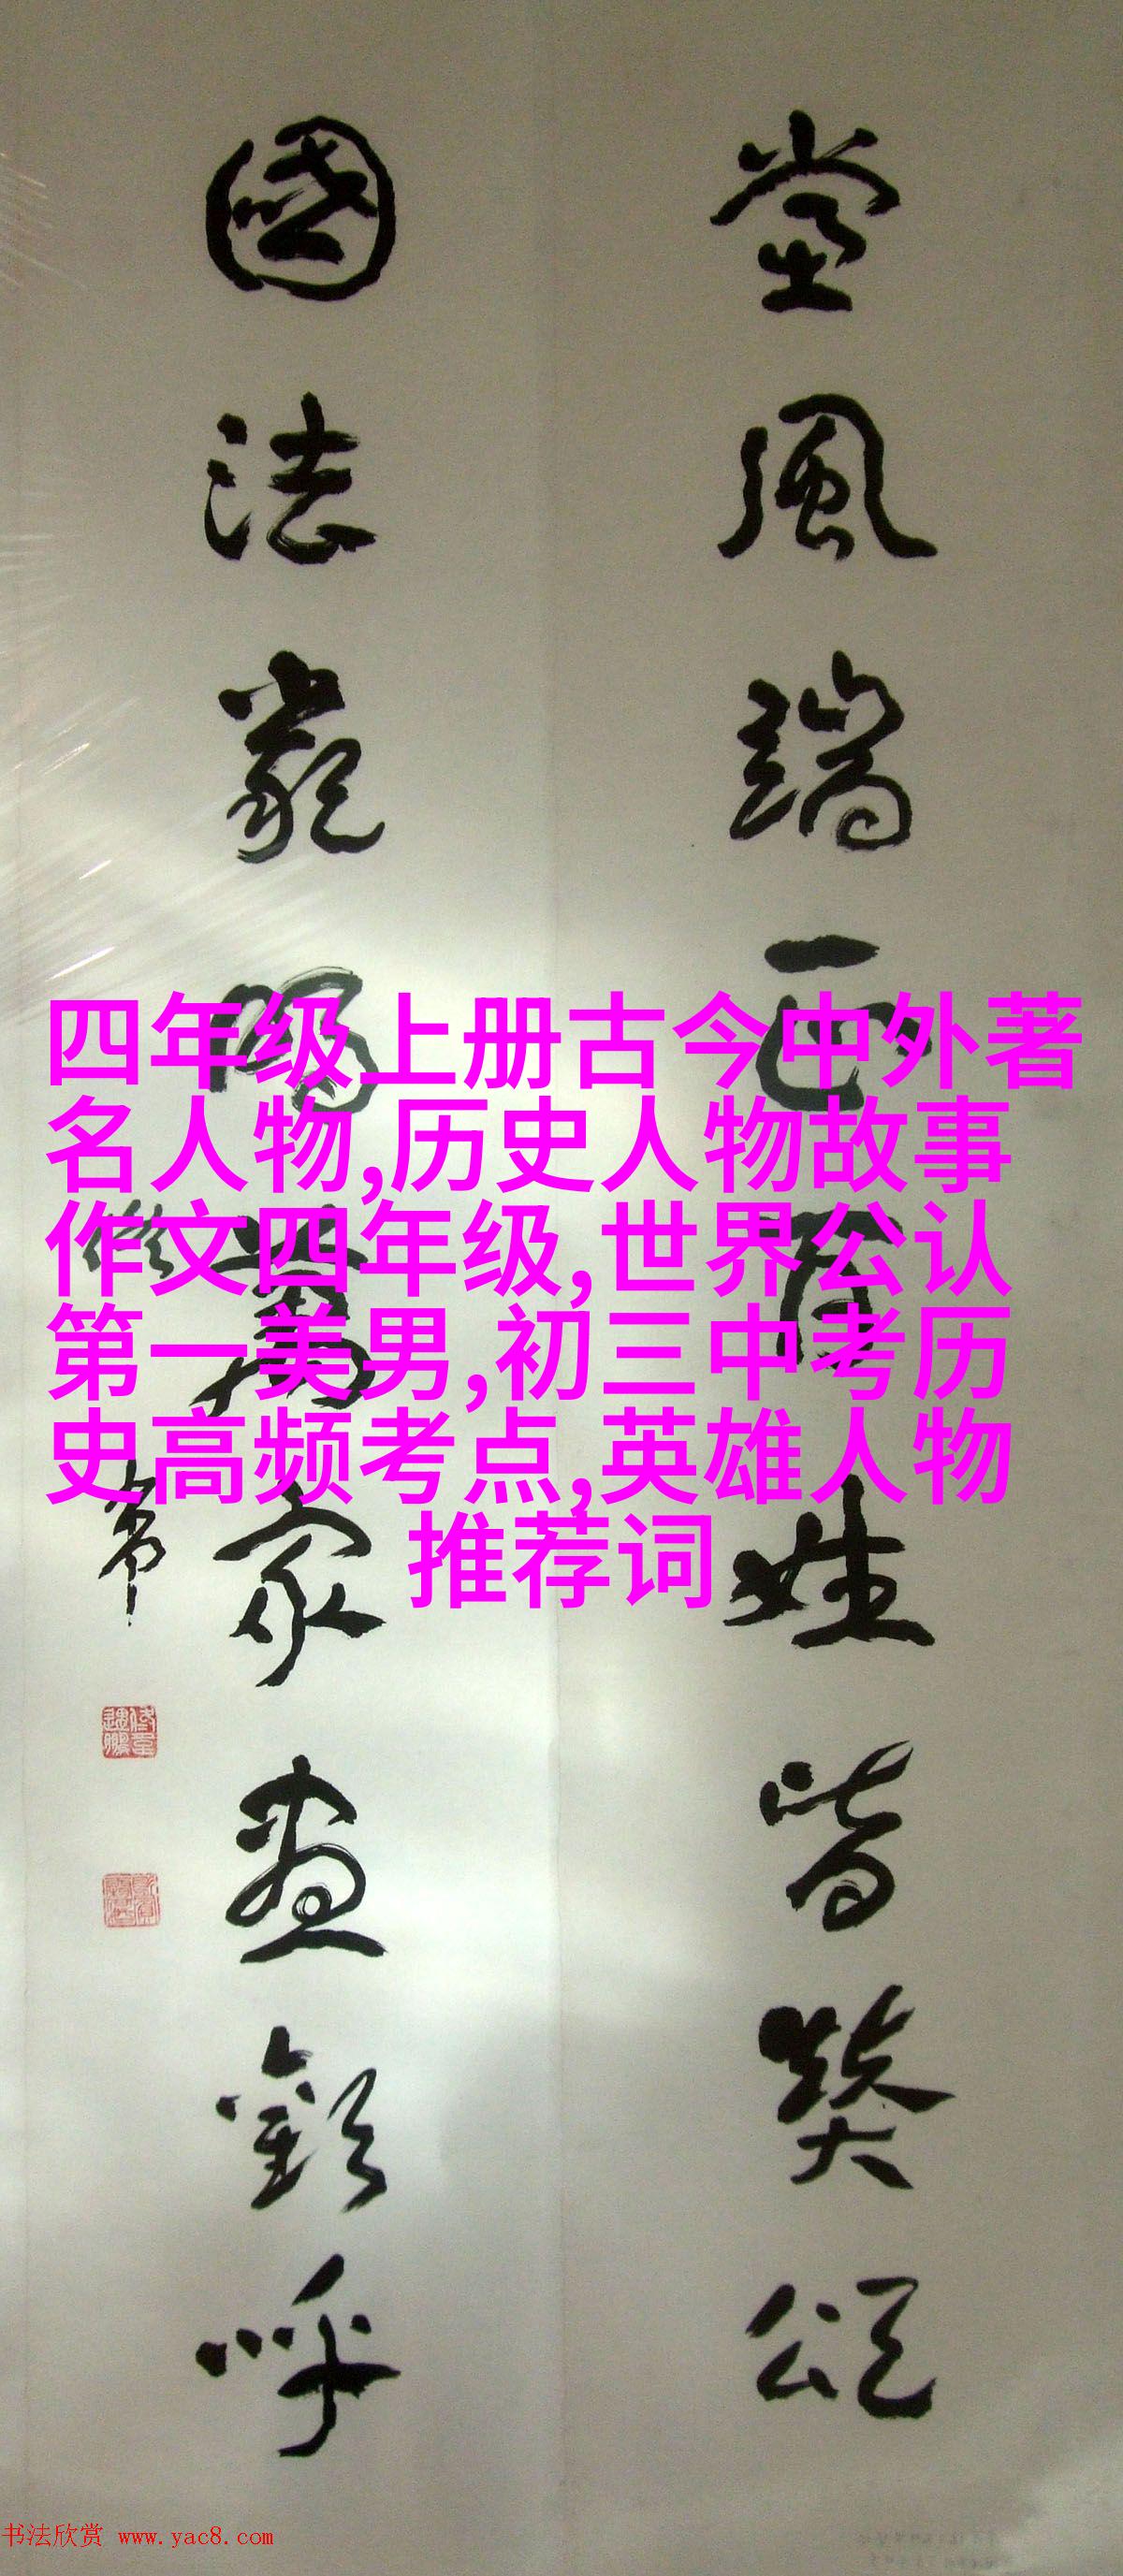 風端正百姓皆贊頌
國法嚴明萬家盡歡呼
四年级上册古今中外著
名人物,历史人物故事
作文四年级,世界公认
第一美男,初三中考历
史高频考点,英雄人物
推荐词
书法欣赏 www.yac8.com